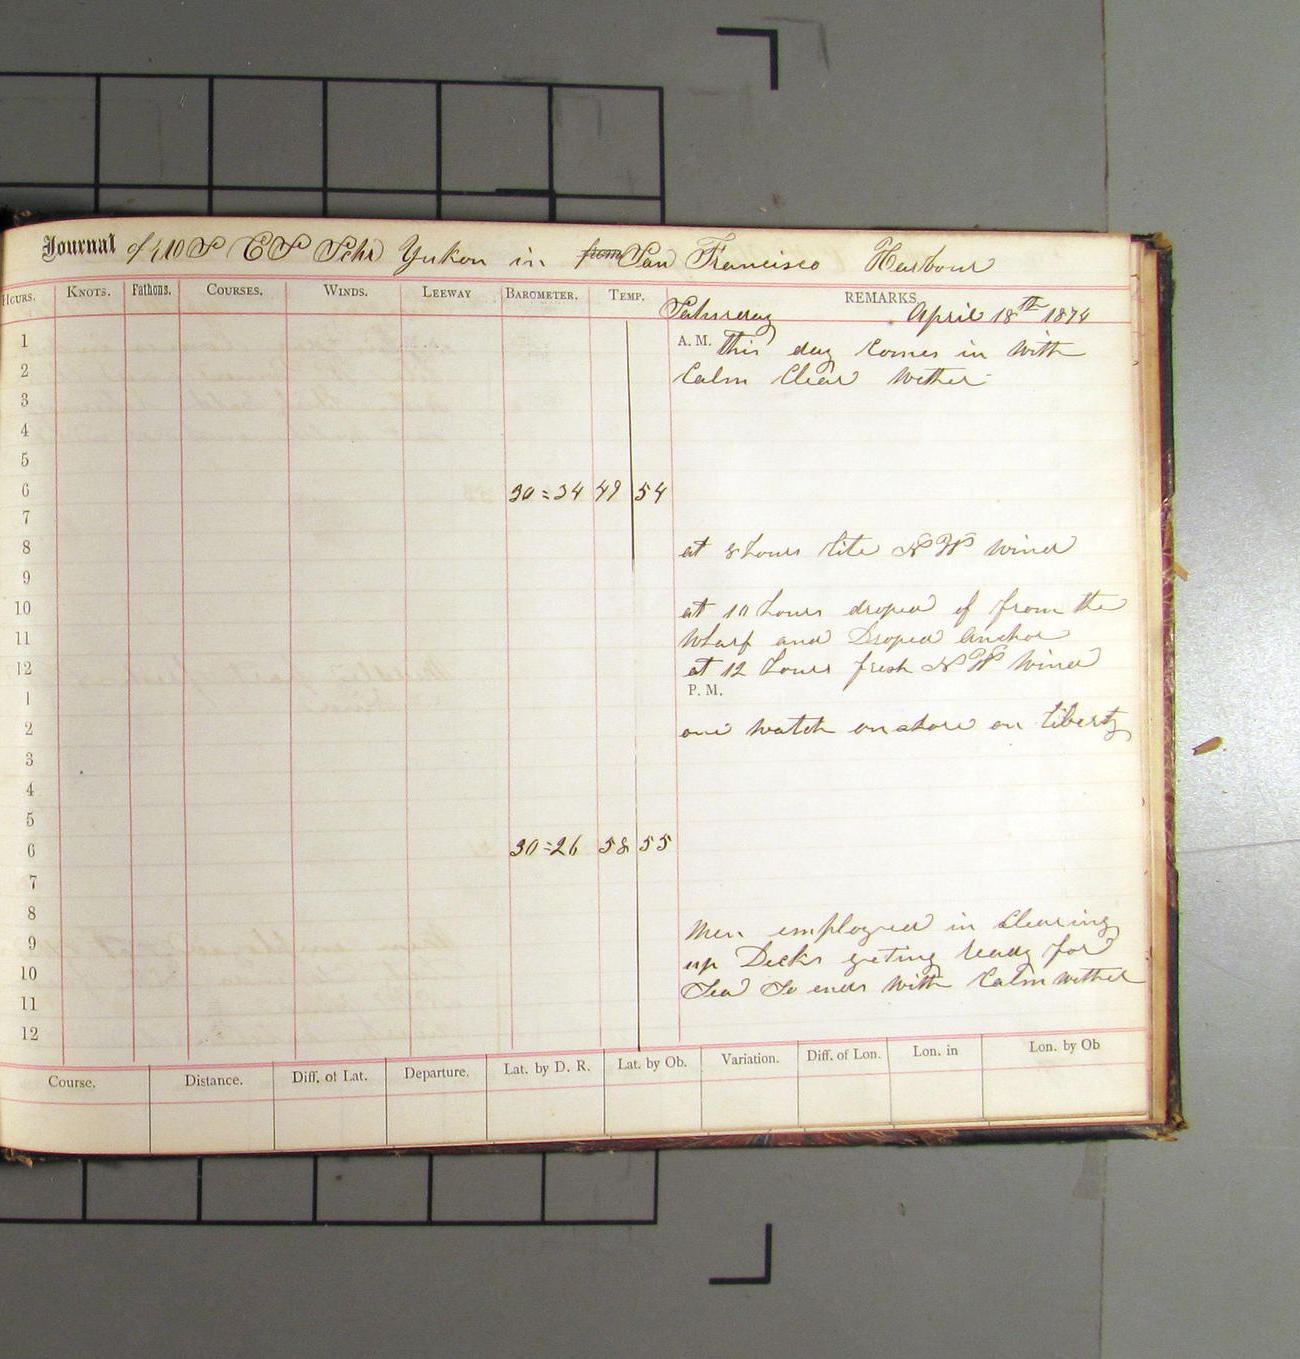 Journal of U S C S Schr Yukon in from San Francisco Harbour
HOURS. KNOTS. Fathons. COURSES. WINDS. LEEWAY BAROMETER. TEMP. REMARKS
Saturday April 18th 1874
1 A. M. This day Comes in With
2 Calm Clear Wether
3
4
5
6 30=34 49 54
7
8 at 8 hours lite N W Wind
9
10 at 10 hours droped of from the
11 Wharf and Droped Anchor
12 at 12 hours fresh N W Wind
P. M.
1
2 one Watch on shore on liberty
3
4
5
6 30=26 58 55
7
8
9 Men employed in Clearing
10 up Decks geting ready for
11 Sea So ends With Calm wether
12
Course. Distance. Diff. of Lat. Departure. Lat. by D. R. Lat. by Ob. Variation. Diff. of Lon. Lon. in Lon. by Ob